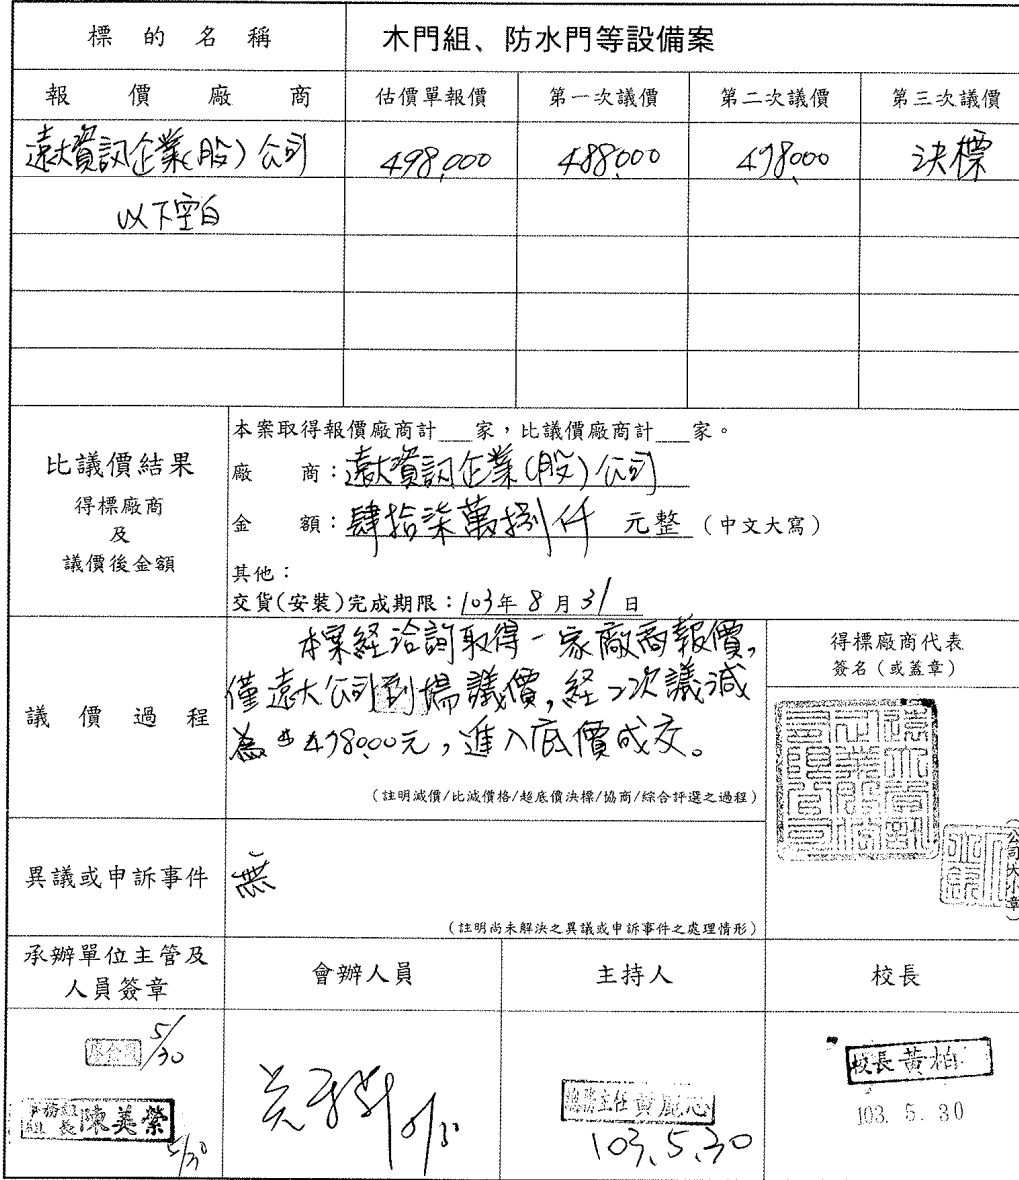 標的名稱 木門組、防水門等設備案
報價廠商 估價單報價 第一次議價 第二次議價 第三次議價
遠大資訊企業(股)公司 498,000 488,000 478,000 決標
以下空白
比議價結果
得標廠商
及
議價後金額
本案取得報價廠商計___家，比議價廠商計___家。
廠商：遠大資訊企業(股)公司
金額：肆拾柒萬捌仟 元整（中文大寫）
其他：
交貨(安裝)完成期限：103年8月31日
議價過程
本案経洽詢取得一家廠商報價，
僅遠大公司到場議價，経二次議減
為$478,000元，進入底價成交。
（註明減價/比減價格/超底價決標/協商/綜合評選之過程）
得標廠商代表
簽名（或蓋章）
（公司大小章）
異議或申訴事件
無
（註明尚未解決之異議或申訴事件之處理情形）
承辦單位主管及
人員簽章
會辦人員
主持人
校長
5/30
事務組
組長 陳美縈
5/30
總務主任
103.5.30
校長黃柏
103. 5. 30